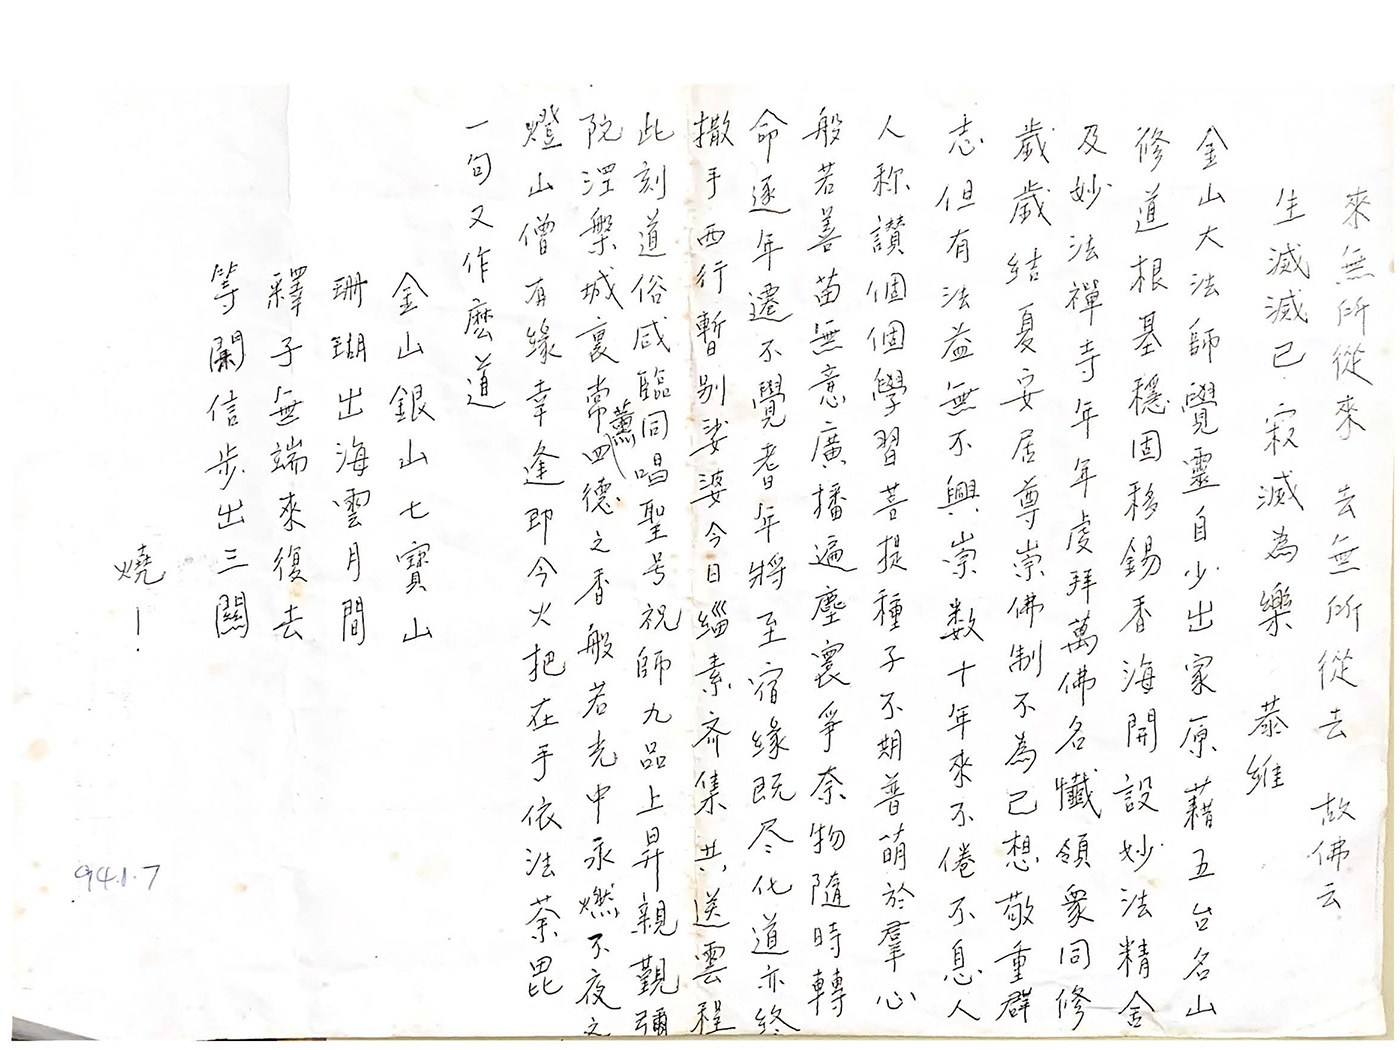 來無所從來 去無所從去 故佛云
生滅滅已 寂滅為樂 恭維
金山大法師覺靈自少出家原藉五台名山
修道根基穩固移錫香海開設妙法精舍
及妙法禪寺年年虔拜萬佛名懺領眾同修
歲歲結夏安居尊崇佛制不為己想敬重群
志但有法益無不興崇数十年來不倦不息人
人称讚個個學習菩提種子不期普萌於羣心
般若善苗無意廣播遍塵寰爭奈物隨時轉
命逐年遷不覺耆年將至宿緣既尽化道亦終
撒手西行暫别娑婆今日緇素齐集共送雲程
此刻道俗咸臨同唱聖号祝師九品上昇親觀彌
陀涅槃城裏常薰四德之香般若光中永燃不夜之
燈山僧有緣幸逢即今火把在手依法荼毘
一句又作麼道
金山銀山七寶山
珊瑚出海雲月間
釋子無端來復去
等閑信步出三關
燒一!
94.1.7